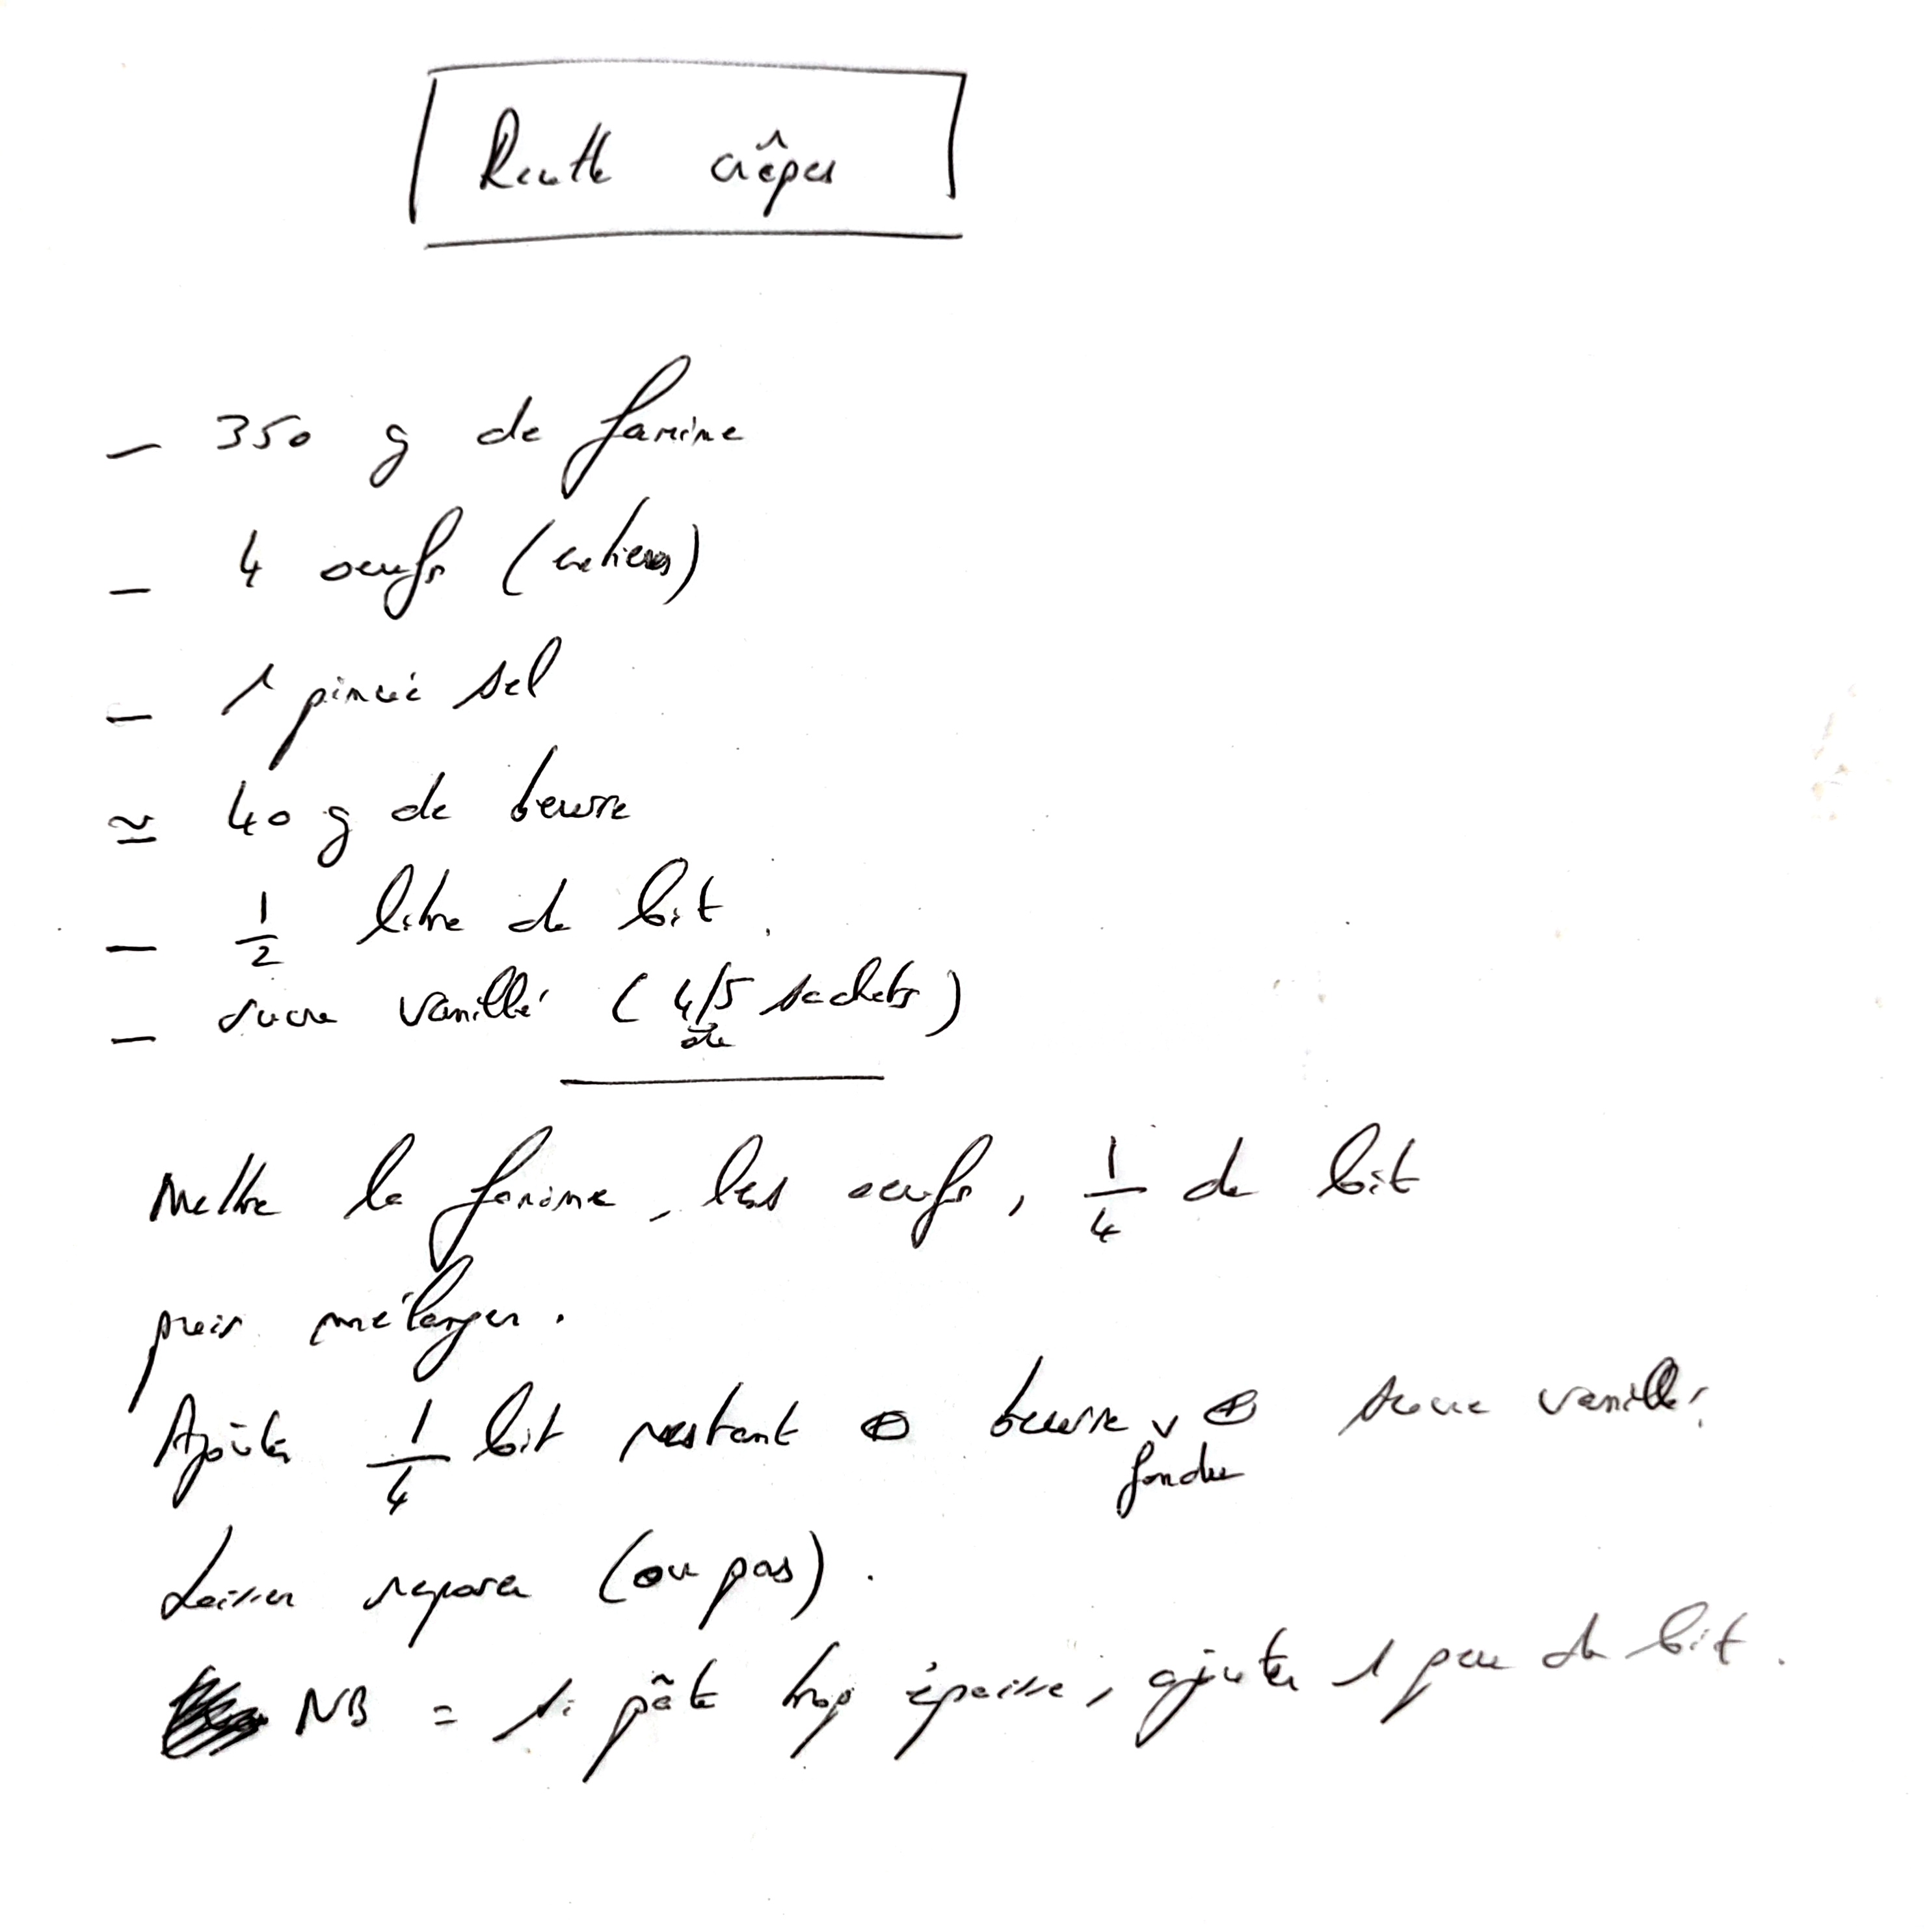 Recette crêpes
- 350 g de farine
- 4 oeufs (entiers)
- 1 pincée sel
≃ 40 g de beurre
- 1/2 litre de lait.
- sucre vanillé (4/5 sachets)
ou
Mettre la farine, les oeufs, 1/4 de lait
puis mélanger.
Ajoûter 1/4 lait restant ⊕ beurre ∨ ⊕ sucre vanillé.
fondu
Laisser reposer (ou pas).
NB = si pâte trop épaisse, ajouter 1 peu de lait.